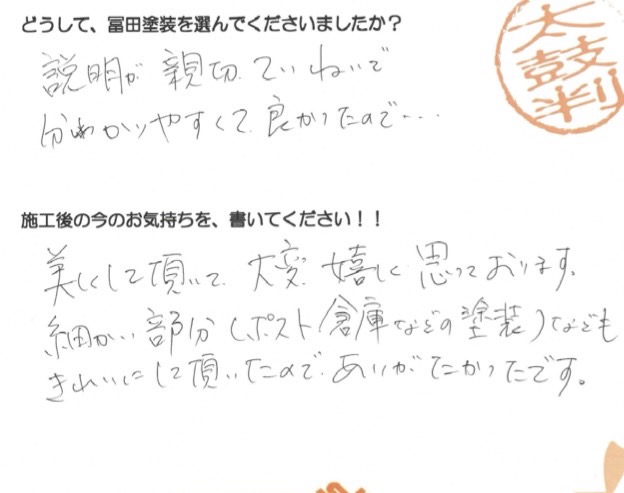 どうして、冨田塗装を選んでくださいましたか？
太鼓判
説明が親切、ていねいで
分わかりやすくて、良かったので…
施工後の今のお気持ちを、書いてください！！
美しくして頂いて、大変、嬉しく思っております。
細かい部分（ポスト倉庫などの塗装）なども
きれいにして頂いたので、ありがたかったです。